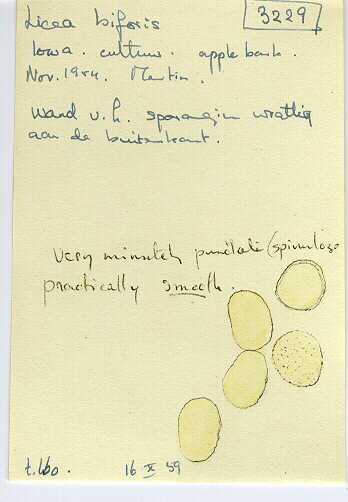 3229
Licea biforis
Iowa. culture. apple bark.
Nov. 1954. Martin.
Wand v.h. sporangium wrattig
aan de buitenkant.
Very minutely punctate (spinulose
practically smooth.
16 X 59